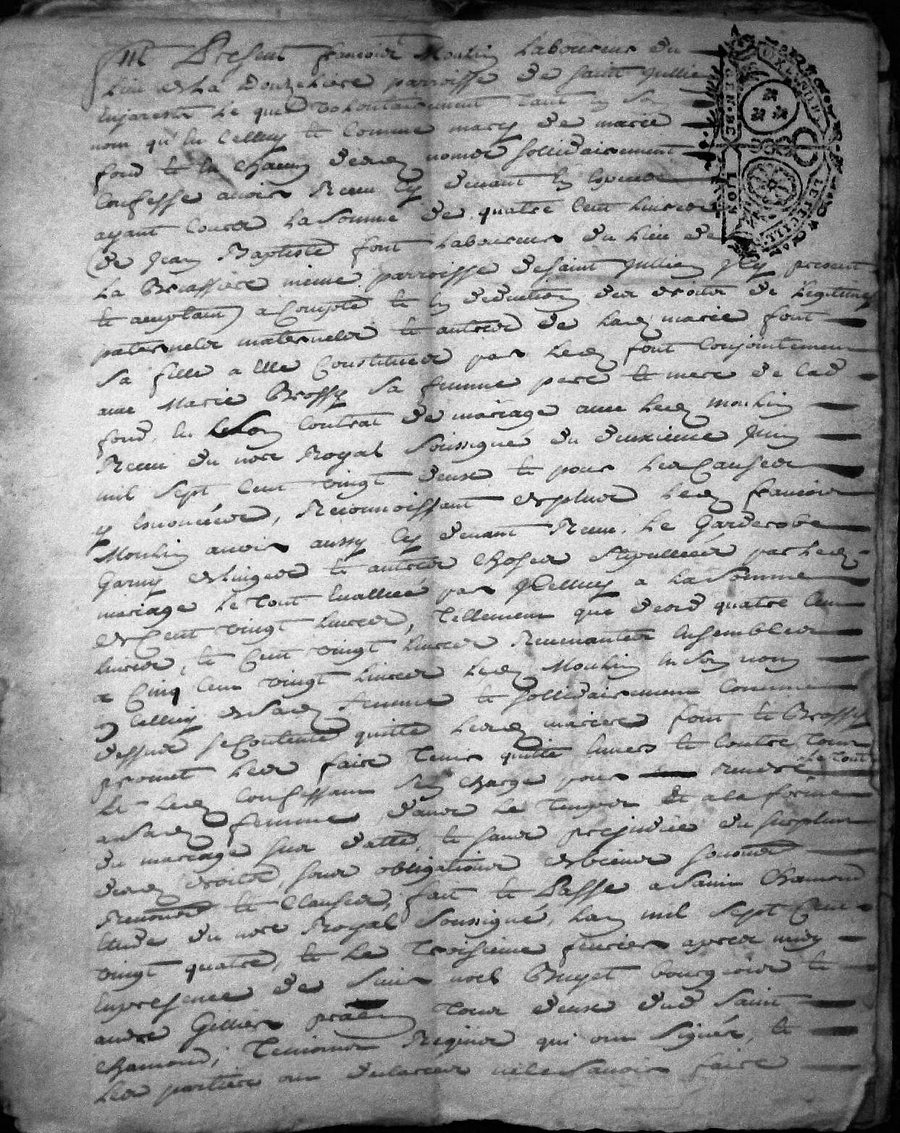 Fut Present francois Moulin Laboureur du
Lieu de La Donzeliere parroisse de Saint Jullie
Enjarests Le quel volontairement tant en son
nom qu'en celluy et comme mary de marie
font et en chacun desd noms sollidairement
Confesse avoir Receu cy devant en espece
ayant Cours La Somme de quatre Cent livres
de Jean Baptiste font Laboureur du Lieu de
La Brassiere meme parroisse de Saint Jullien Icy present
et acceptant a Compte et en deduction des droits de Legitimes
paternels maternels et autres de lad marie font
Sa fille a elle Constitues par led font Conjointement
avec Marie Brossy sa femme pere et mere de lad
font, en leson Contrat de mariage avec led moulin
Receu du nore Royal Soussigné du deuxieme Juin
mil Sept Cent vingt deux et pour les Causes
y enoncées, Reconnoissant de plus led francois
Moulin avoir aussy cy devant Receu Le Garderobe
Garny de linges et autres choses Stipullées par led
mariage Le tout Evallué par Icelluy a La Somme
de Cent vingt livres, Tellement que desd quatre Cen
livres, et Cent vingt livres Revenantes Ensembles
a Cinq Cen vingt livres led Moulin en son nom
q Celluy de sad femme et Sollidairement Comme
dessus se Contente quitte lesd mariés font et Brossy
promet les faire tenir quitte envers et contre tous
Le tout
et led Confessant sen charge pour rendre
a Sad femme dans Le temps et a la forme
du mariage sur datté, et sans prejudice du surplus
desd droits, sous obligations de biens soumis
Renons et Clauses, fait et Passé a Saint Chamond
Etude du nore Royal Soussigné, Lan mil Sept Cent
vingt quatre, et le troisieme fevrier apres midy
En presence de Sieur noel Bruyet bourgeois et
andre Gillier tous deux dud Saint
Chamond, Temoins Requis qui ont Signés, et
Les parties ont declaré ne le Savoir faire
GEN. DE LION